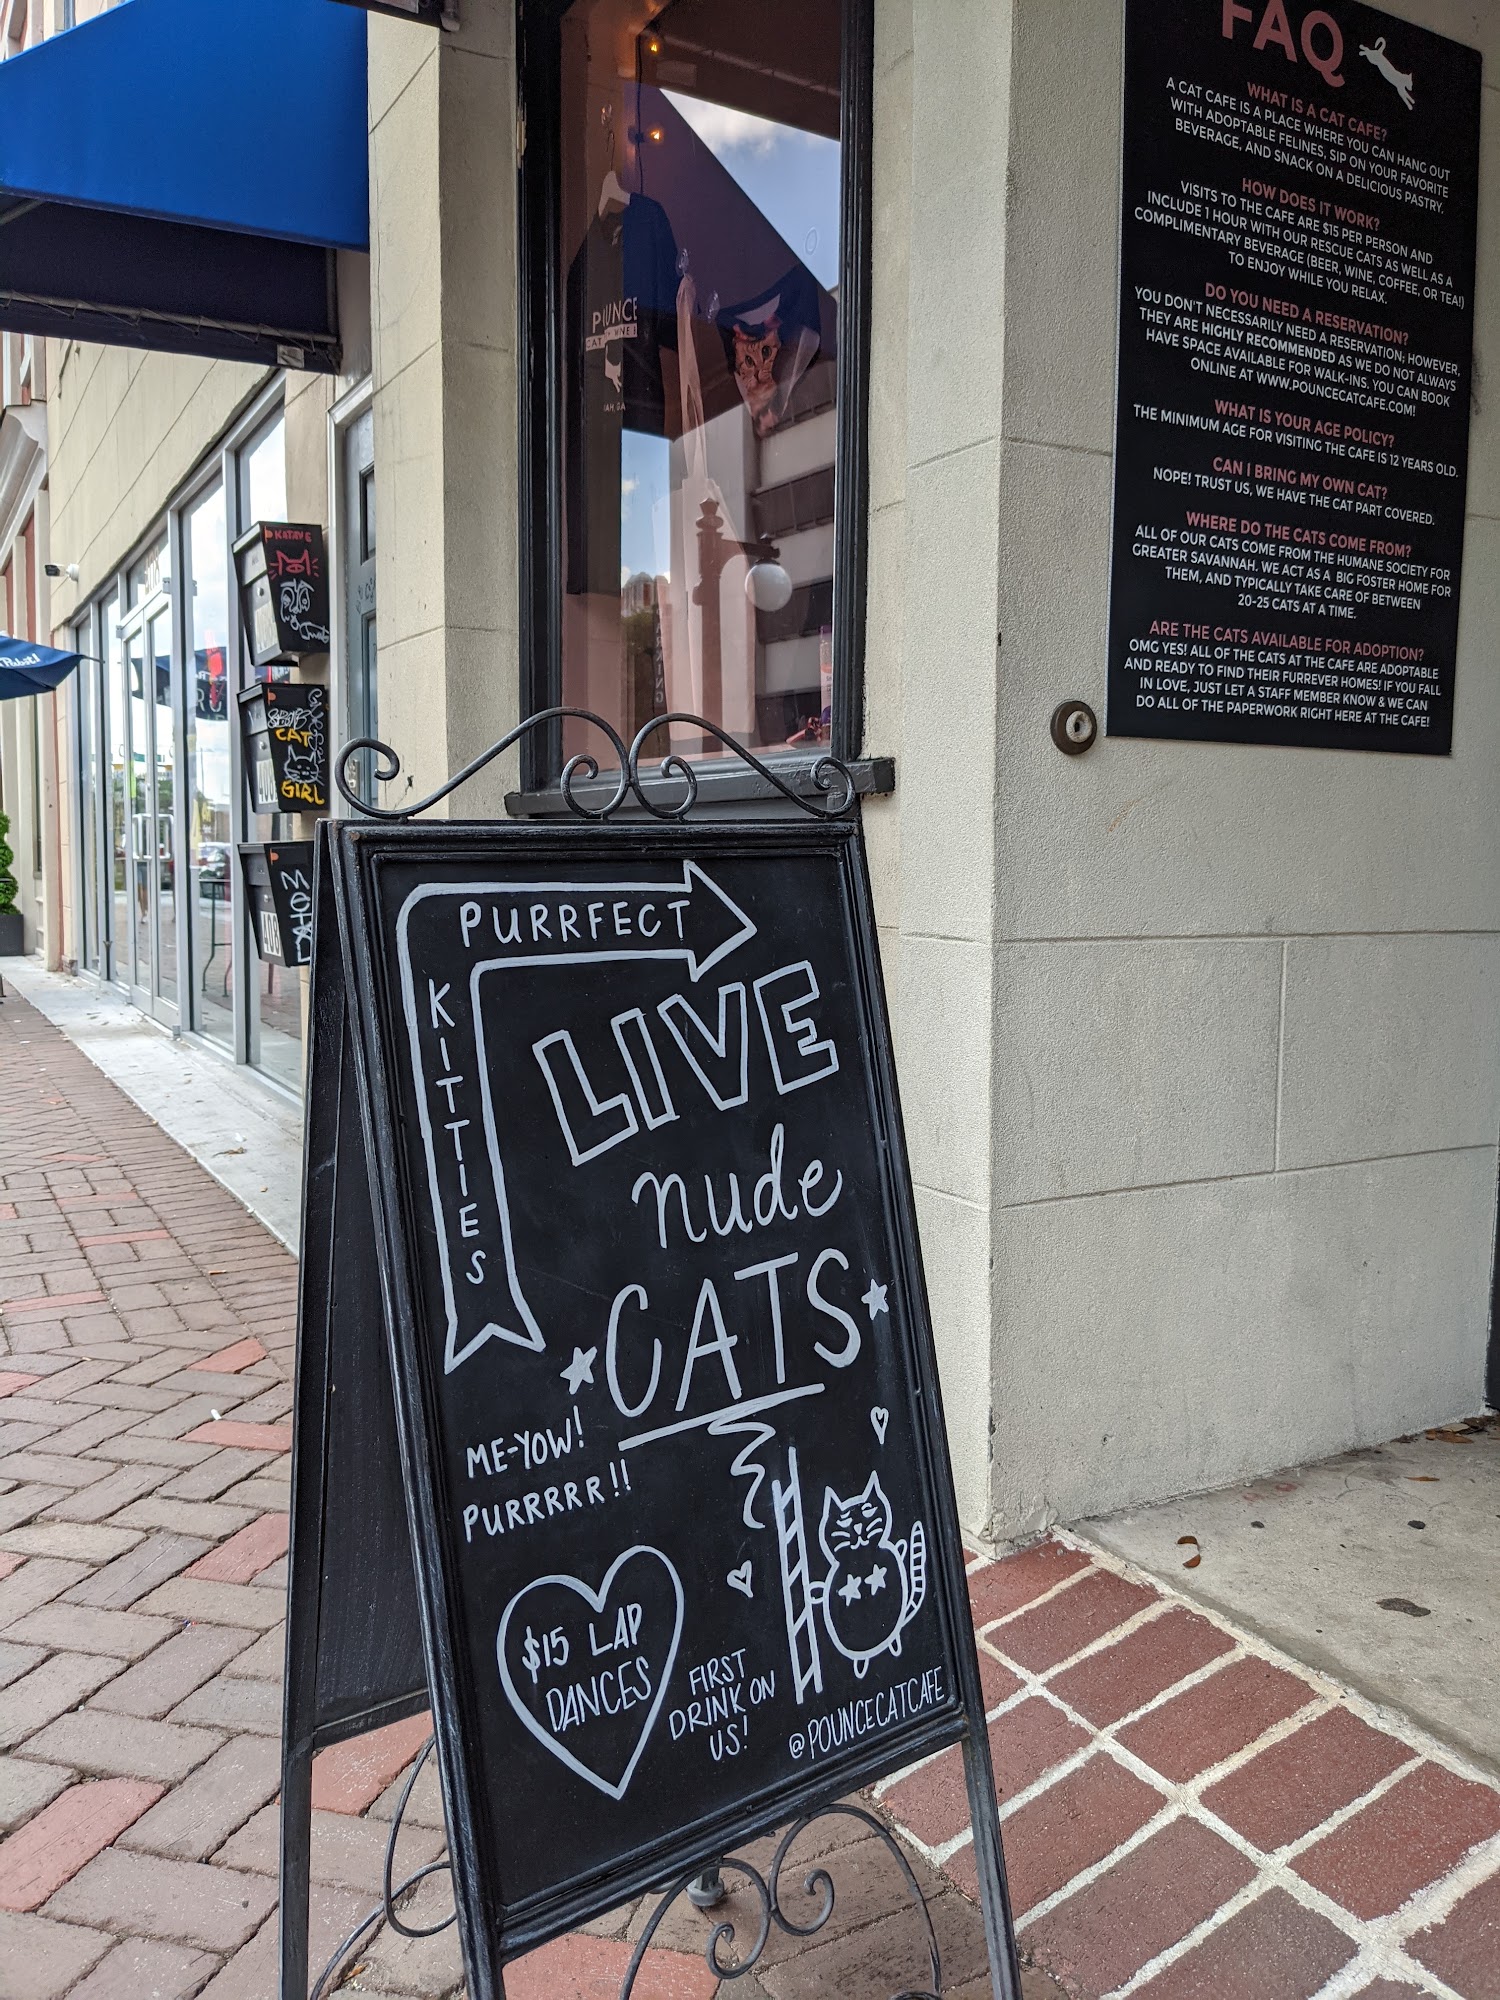 FAQ
WHAT IS A CAT CAFE?
A CAT CAFE IS A PLACE WHERE YOU CAN HANG OUT
WITH ADOPTABLE FELINES, SIP ON YOUR FAVORITE
BEVERAGE, AND SNACK ON A DELICIOUS PASTRY.
HOW DOES IT WORK?
VISITS TO THE CAFE ARE $15 PER PERSON AND
INCLUDE 1 HOUR WITH OUR RESCUE CATS AS WELL AS A
COMPLIMENTARY BEVERAGE (BEER, WINE, COFFEE, OR TEA!)
TO ENJOY WHILE YOU RELAX.
DO YOU NEED A RESERVATION?
YOU DON'T NECESSARILY NEED A RESERVATION; HOWEVER,
THEY ARE HIGHLY RECOMMENDED AS WE DO NOT ALWAYS
HAVE SPACE AVAILABLE FOR WALK-INS. YOU CAN BOOK
ONLINE AT WWW.POUNCECATCAFE.COM!
WHAT IS YOUR AGE POLICY?
THE MINIMUM AGE FOR VISITING THE CAFE IS 12 YEARS OLD.
CAN I BRING MY OWN CAT?
NOPE! TRUST US, WE HAVE THE CAT PART COVERED.
WHERE DO THE CATS COME FROM?
ALL OF OUR CATS COME FROM THE HUMANE SOCIETY FOR
GREATER SAVANNAH. WE ACT AS A BIG FOSTER HOME FOR
THEM, AND TYPICALLY TAKE CARE OF BETWEEN
20-25 CATS AT A TIME.
ARE THE CATS AVAILABLE FOR ADOPTION?
OMG YES! ALL OF THE CATS AT THE CAFE ARE ADOPTABLE
AND READY TO FIND THEIR FURREVER HOMES! IF YOU FALL
IN LOVE, JUST LET A STAFF MEMBER KNOW & WE CAN
DO ALL OF THE PAPERWORK RIGHT HERE AT THE CAFE!
POUNCE
CAT
GIRL
408
PURRFECT
KITTIES
LIVE
nude
CATS
ME-YOW!
PURRRRR!!
$15 LAP
DANCES
FIRST
DRINK ON
US!
@POUNCECATCAFE